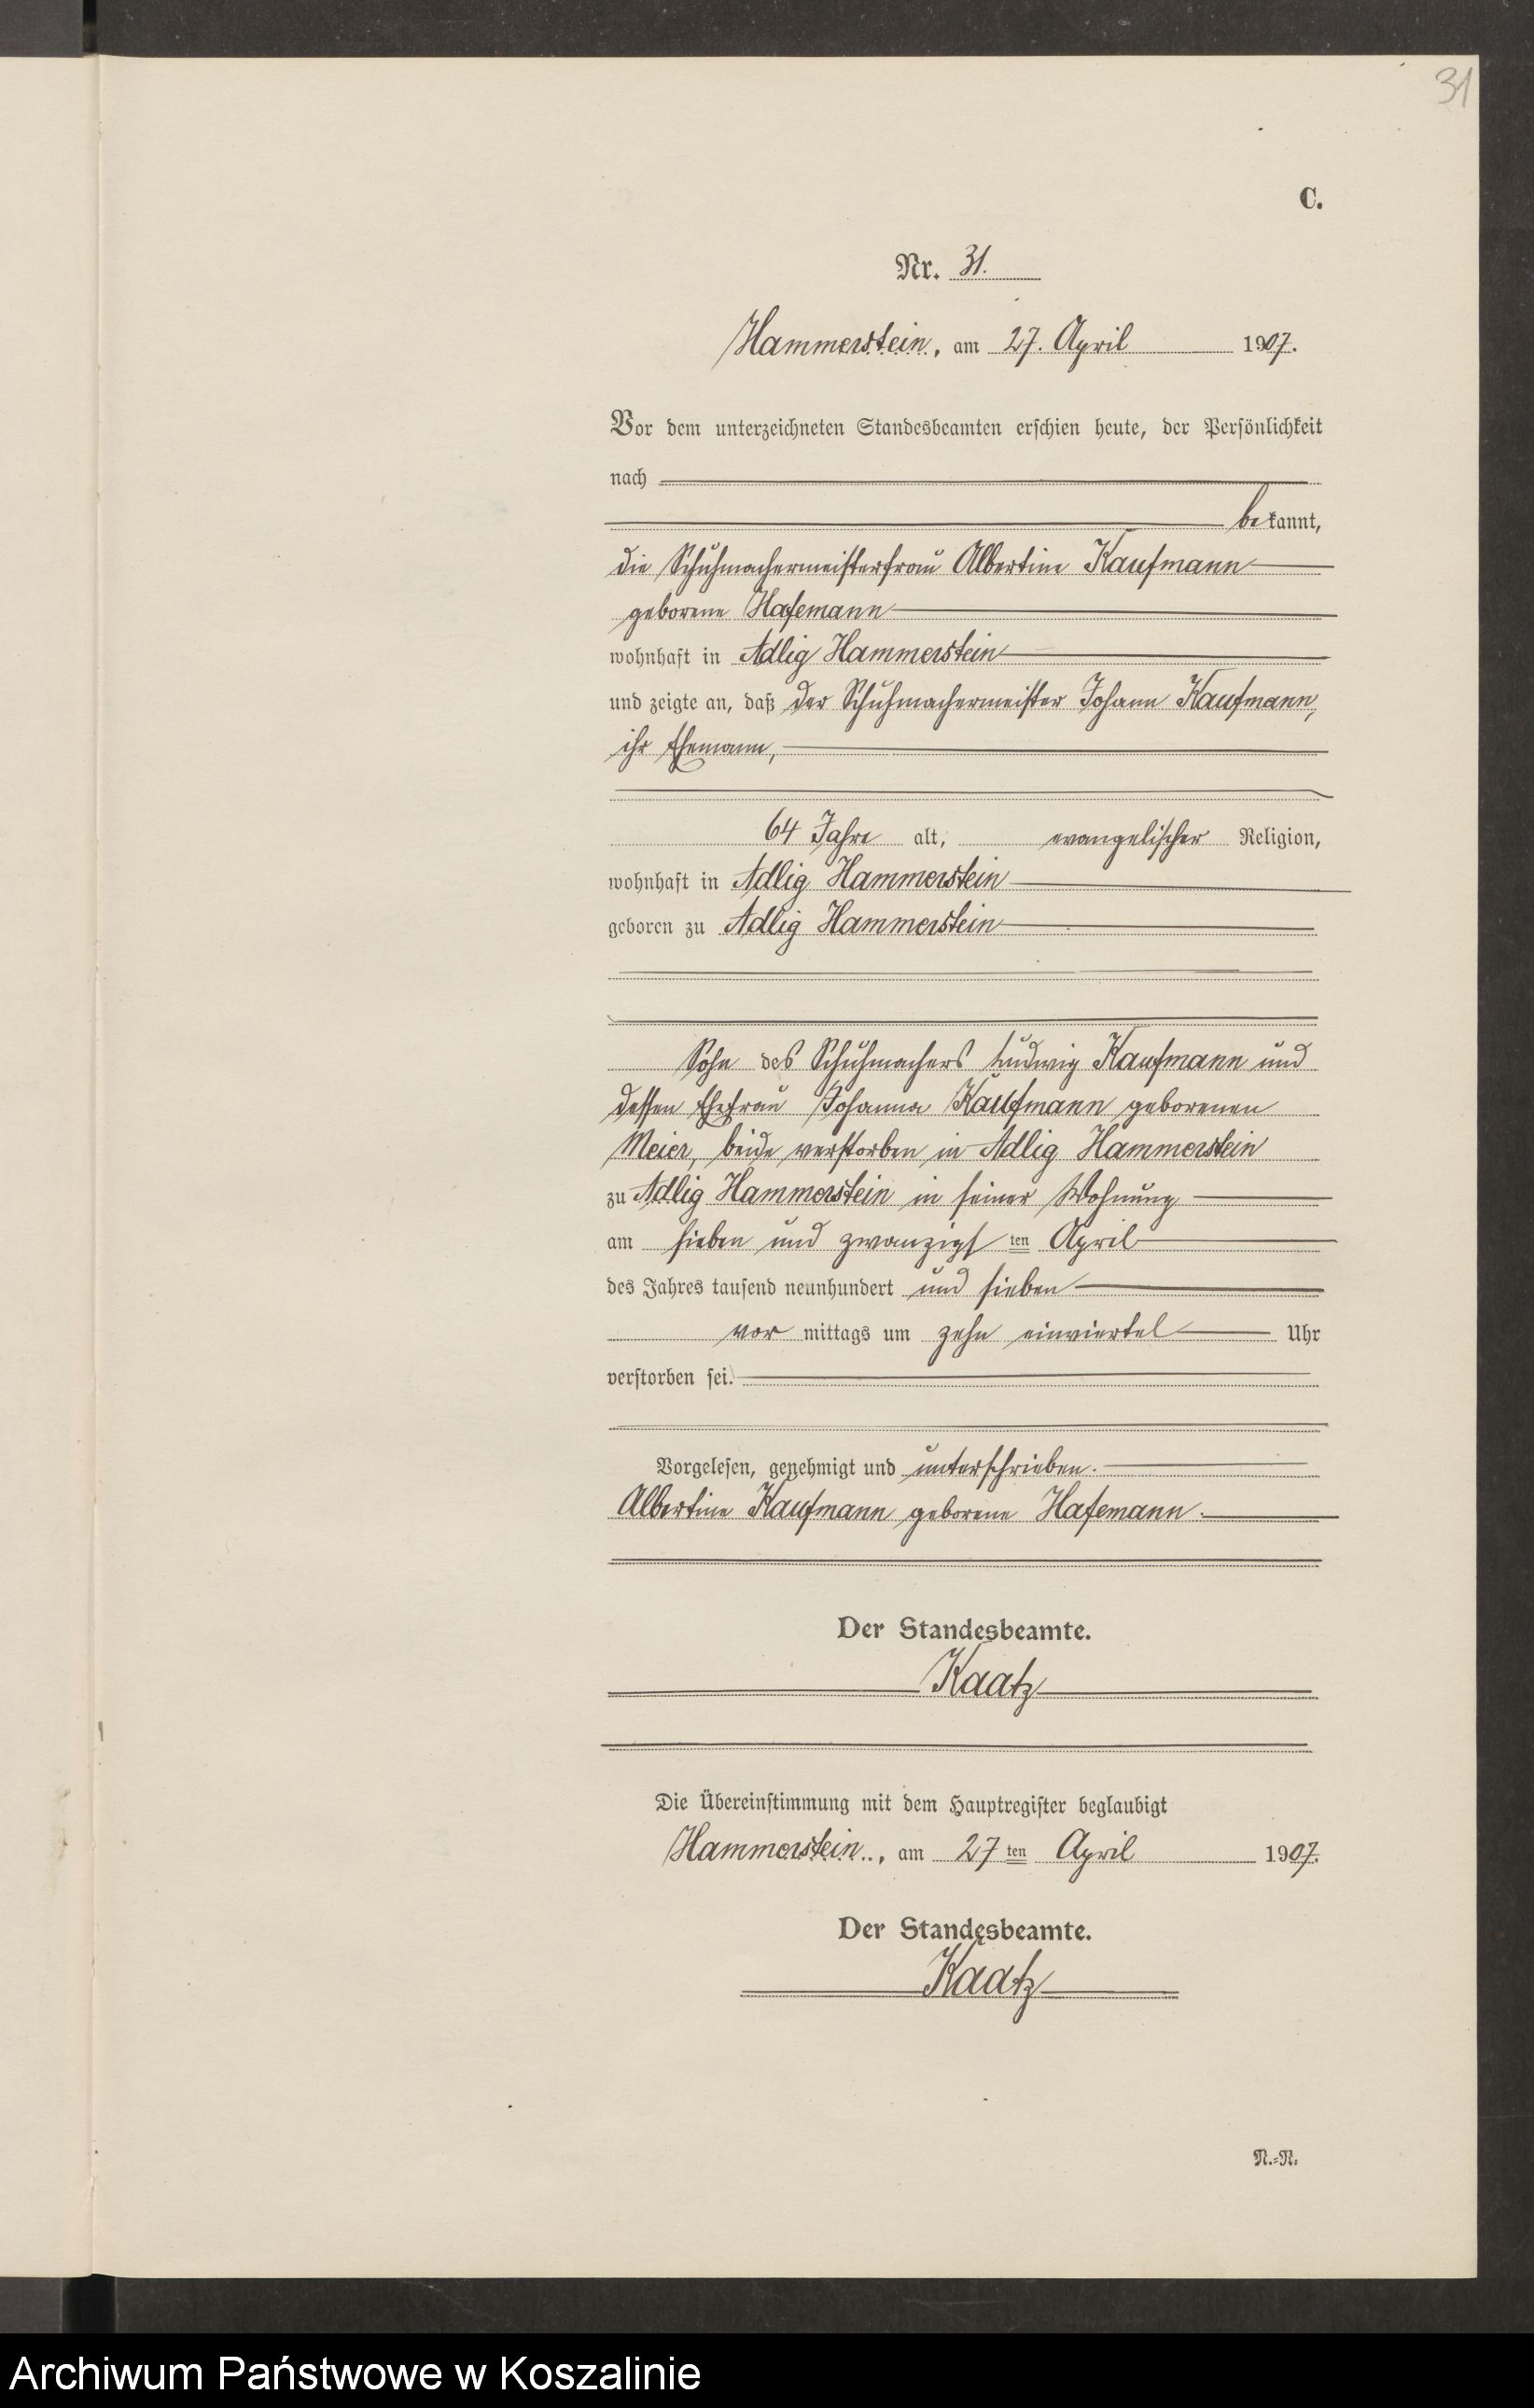 31
C.
Nr. 31.
Hammerstein, am 27. April 1907.
Vor dem unterzeichneten Standesbeamten erschien heute, der Persönlichkeit
nach
bekannt,
die Schuhmachermeisterfrau Albertine Kaufmann
geborene Hasemann
wohnhaft in Adlig Hammerstein
und zeigte an, daß der Schuhmachermeister Johann Kaufmann,
ihr Ehemann,
64 Jahre alt, evangelischer Religion,
wohnhaft in Adlig Hammerstein
geboren zu Adlig Hammerstein
Sohn des Schuhmachers Ludwig Kaufmann und
dessen Ehefrau Johanna Kaufmann geborenen
Meier, beide verstorben in Adlig Hammerstein
zu Adlig Hammerstein in seiner Wohnung
am sieben und zwanzigsten April
des Jahres tausend neunhundert und sieben
vor mittags um zehn einviertel Uhr
verstorben sei.
Vorgelesen, genehmigt und unterschrieben.
Albertine Kaufmann geborene Hasemann.
Der Standesbeamte.
Kaatz
Die Übereinstimmung mit dem Hauptregister beglaubigt
Hammerstein, am 27ten April 1907.
Der Standesbeamte.
Kaatz
N.-R.
Archiwum Państwowe w Koszalinie